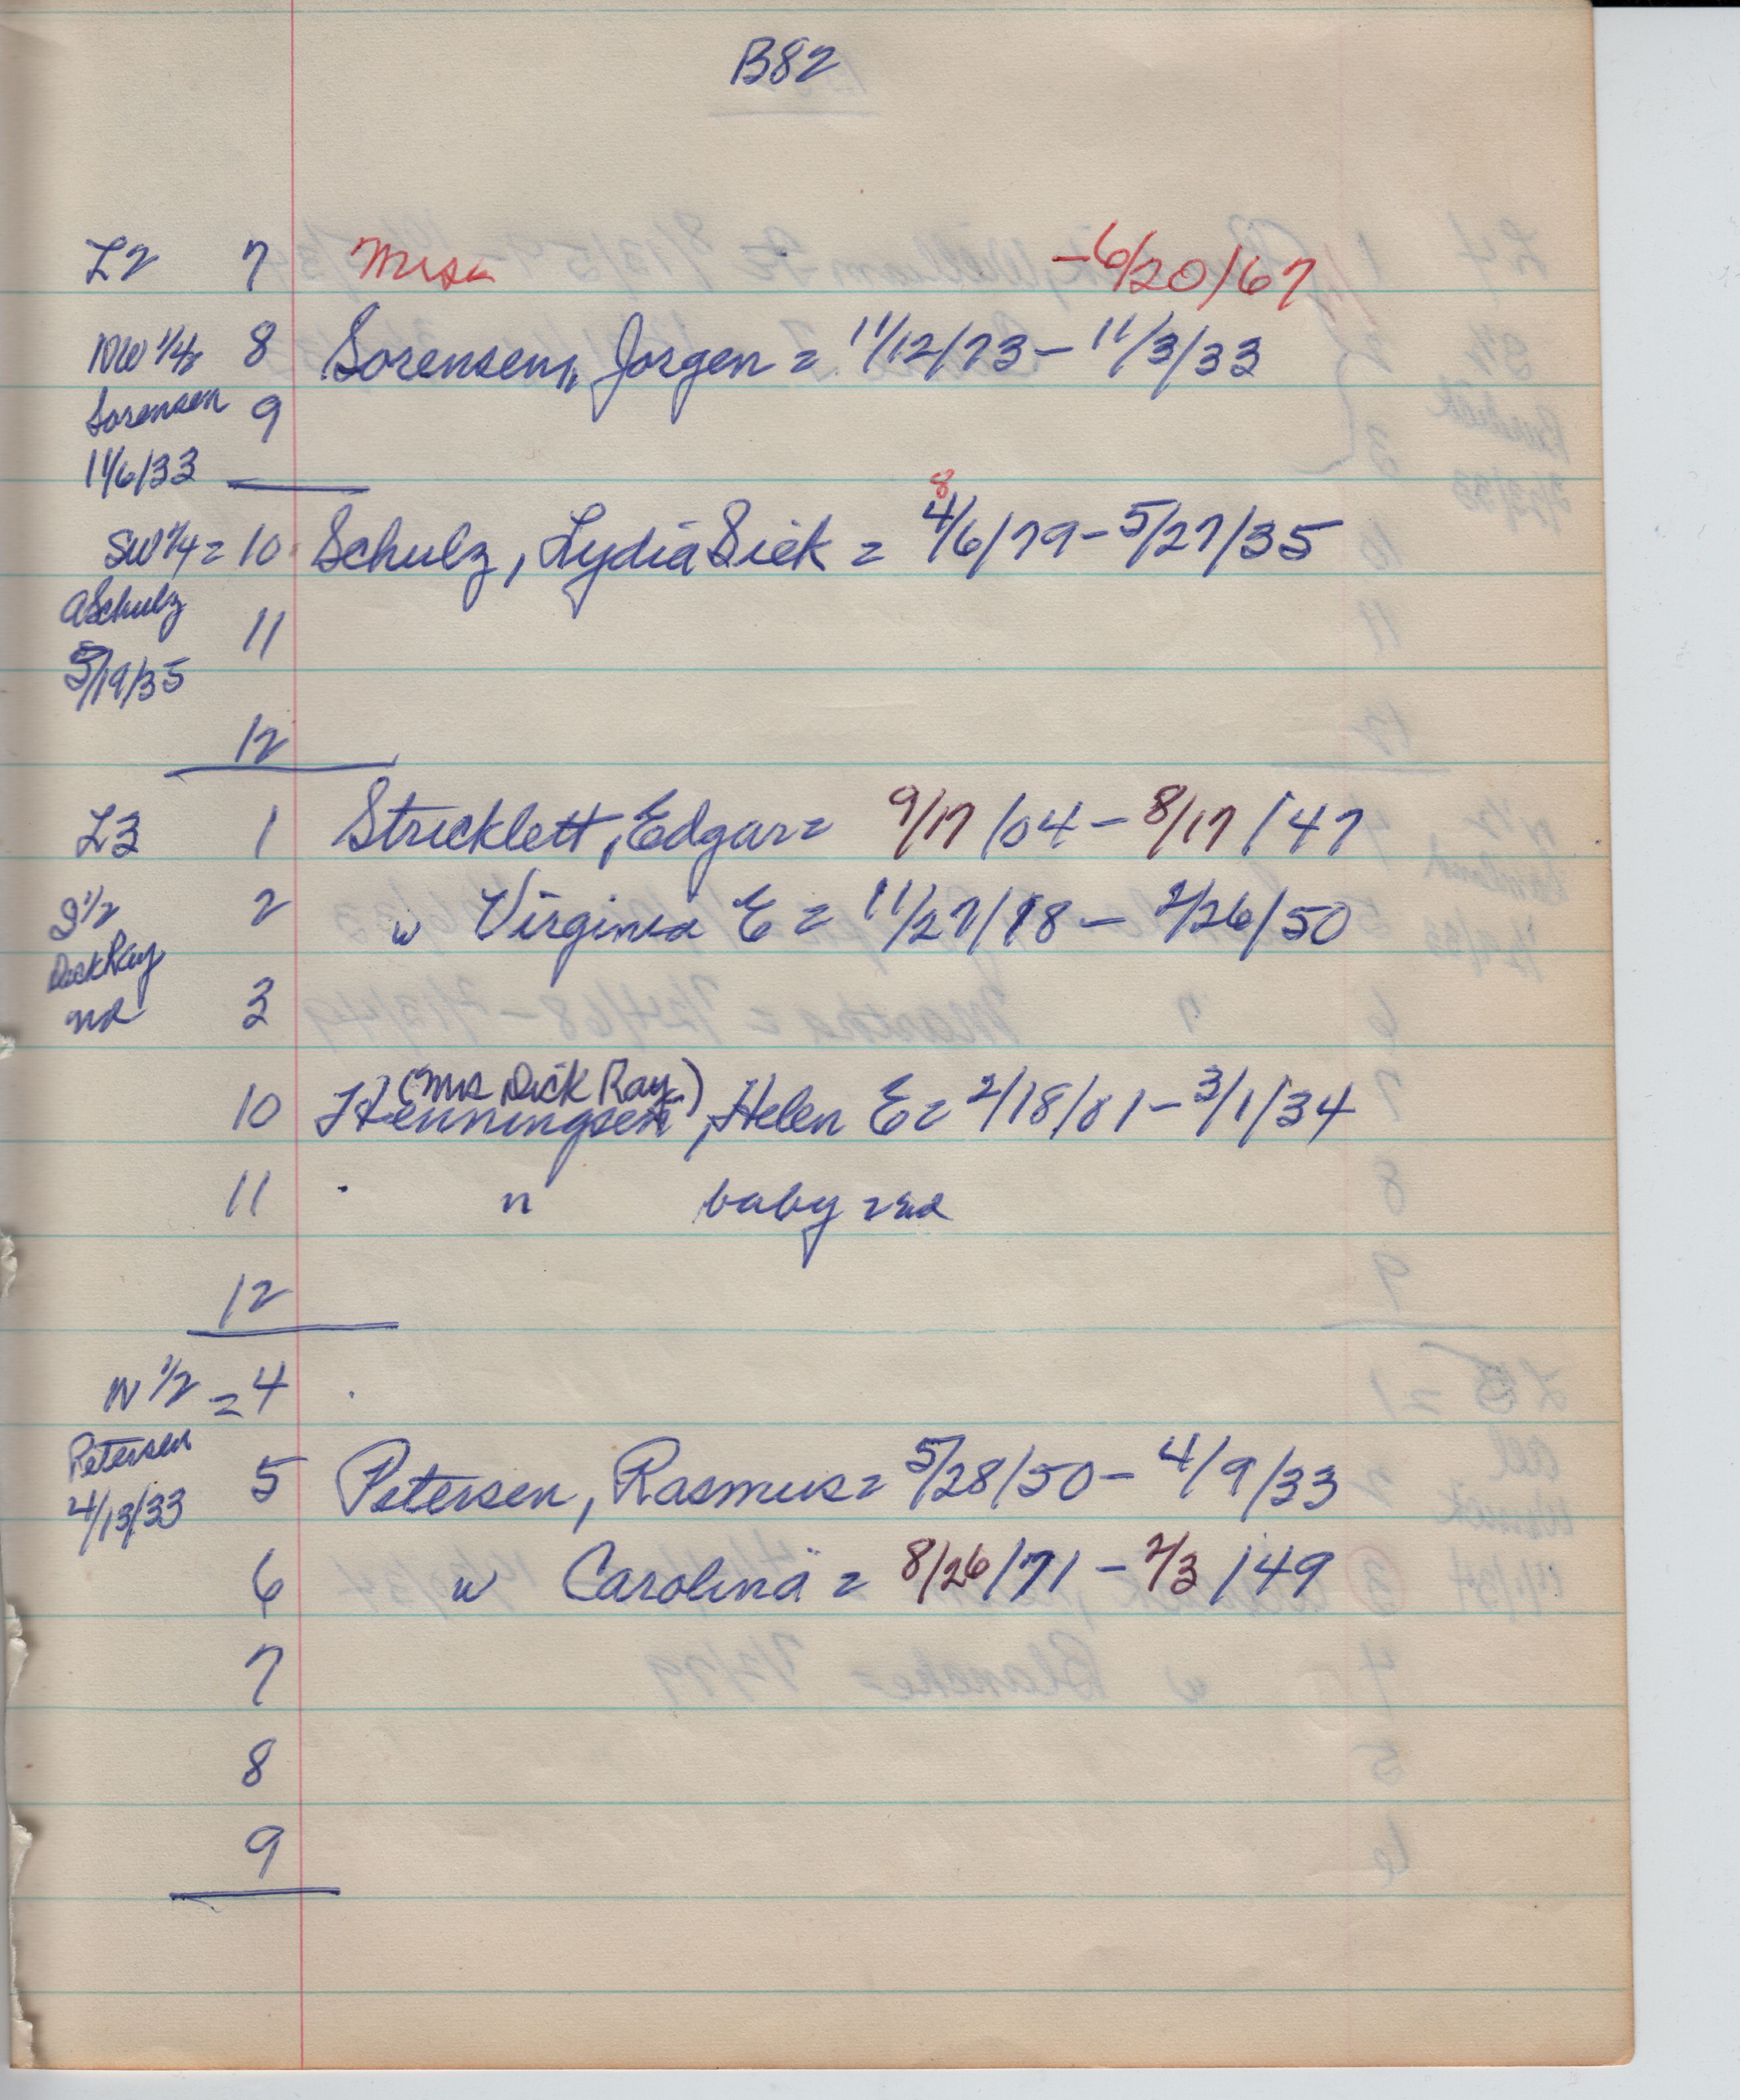 B82
L2 7 Mrs - 6/20/67
NW 1/4 8 Sorensen, Jorgen = 11/12/73 - 11/3/33
Sorensen 9
11/6/33
8
SW 1/4 = 10 Schulz, Lydia Sick = 4/6/79 - 5/27/35
A Schulz 11
5/19/35
12
L3 1 Stricklett, Edgar = 9/17/04 - 8/17/47
S 1/2 2 w Virginia E = 11/27/18 - 2/26/50
Dick Ray
nd 3
(Mrs Dick Ray)
10 Henningsen, Helen E = 2/18/01 - 3/1/34
11 " baby = nd
12
N 1/2 = 4
Petersen 5 Petersen, Rasmus = 5/28/50 - 4/9/33
4/13/33
6 w Carolina = 8/26/71 - 2/3/49
7
8
9